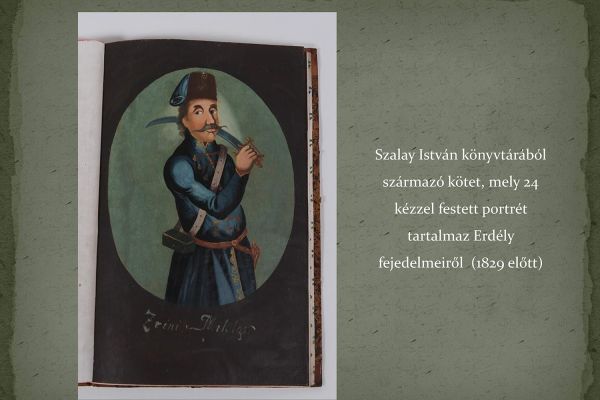 Szalay István könyvtárából
származó kötet, mely 24
kézzel festett portrét
tartalmaz Erdély
fejedelmeiről (1829 előtt)
Zrini Miklos